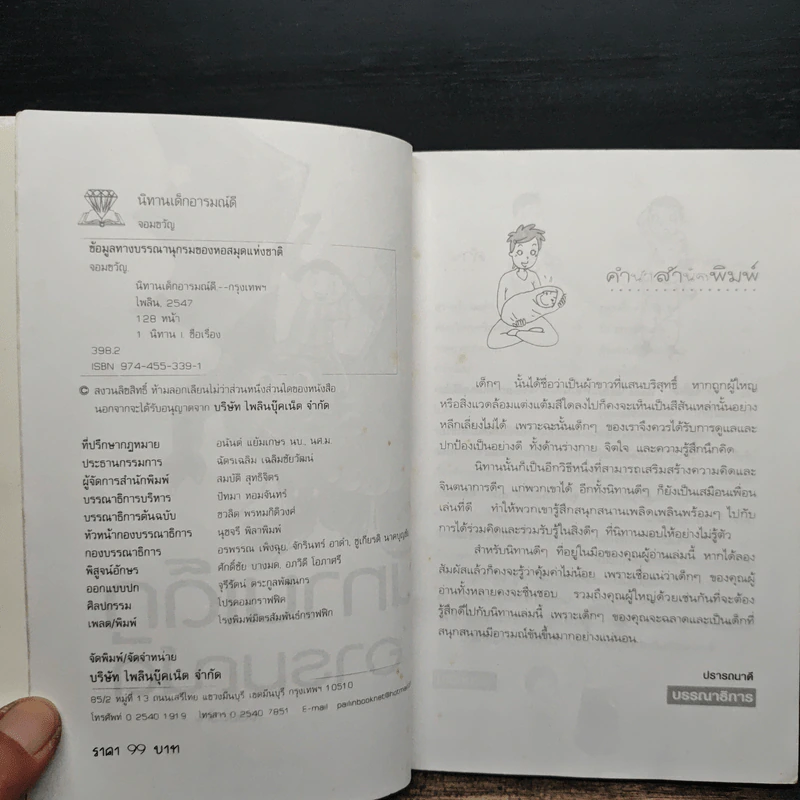 นิทานเด็กอารมณ์ดี
จอมขวัญ
ข้อมูลทางบรรณานุกรมของหอสมุดแห่งชาติ
จอมขวัญ.
นิทานเด็กอารมณ์ดี.--กรุงเทพฯ
ไพลิน, 2547
128 หน้า
1 นิทาน I. ชื่อเรื่อง
398.2
ISBN 974-455-339-1
© สงวนลิขสิทธิ์ ห้ามลอกเลียนไม่ว่าส่วนหนึ่งส่วนใดของหนังสือ
นอกจากจะได้รับอนุญาตจาก บริษัท ไพลินบุ๊คเน็ต จำกัด
ที่ปรึกษากฎหมาย อนันต์ แย้มเกษร นบ., นศ.ม.
ประธานกรรมการ ฉัตรเฉลิม เฉลิมชัยวัฒน์
ผู้จัดการสำนักพิมพ์ สมบัติ สุทธิจิตร
บรรณาธิการบริหาร ปัทมา หอมจันทร์
บรรณาธิการต้นฉบับ ชวลิต พรหมกิติวงศ์
หัวหน้ากองบรรณาธิการ นุชจรี พิลาพิมพ์
กองบรรณาธิการ อรพรรณ เพ็งฉุย, จักรินทร์ อาดำ, ชูเกียรติ
พิสูจน์อักษร ศักดิ์ชัย บางมด, อภวิดี โอภาศรี
ออกแบบปก จุรีรัตน์ ตระกูลพัฒนกร
ศิลปกรรม โปรคอมกราฟฟิค
เพลต/พิมพ์ โรงพิมพ์มิตรสัมพันธ์กราฟฟิก
จัดพิมพ์/จัดจำหน่าย
บริษัท ไพลินบุ๊คเน็ต จำกัด
85/2 หมู่ที่ 13 ถนนเสรีไทย แขวงมีนบุรี เขตมีนบุรี กรุงเทพฯ 10510
โทรศัพท์ 0 2540 1919 โทรสาร 0 2540 7851 E-mail
ราคา 99 บาท
คำนำสำนักพิมพ์
เด็กๆ นั้นได้ชื่อว่าเป็นผ้าขาวที่แสนบริสุทธิ์ หากถูกผู้ใหญ่
หรือสิ่งแวดล้อมแต่งแต้มสีใดลงไปก็คงจะเห็นเป็นสีสันเหล่านั้นอย่าง
หลีกเลี่ยงไม่ได้ เพราะฉะนั้นเด็กๆ ของเราจึงควรได้รับการดูแลและ
ปกป้องเป็นอย่างดี ทั้งด้านร่างกาย จิตใจ และความรู้สึกนึกคิด
นิทานนั้นก็เป็นอีกวิธีหนึ่งที่สามารถเสริมสร้างความคิดและ
จินตนาการดีๆ แก่พวกเขาได้ อีกทั้งนิทานดีๆ ก็ยังเป็นเสมือนเพื่อน
เล่นที่ดี ทำให้พวกเขารู้สึกสนุกสนานเพลิดเพลินพร้อมๆ ไปกับ
การได้ร่วมคิดและร่วมรับรู้ในสิ่งดีๆ ที่นิทานมอบให้อย่างไม่รู้ตัว
สำหรับนิทานดีๆ ที่อยู่ในมือของคุณผู้อ่านเล่มนี้ หากได้ลอง
สัมผัสแล้วก็คงจะรู้ว่าคุ้มค่าไม่น้อย เพราะเชื่อแน่ว่าเด็กๆ ของคุณผู้
อ่านทั้งหลายคงจะชื่นชอบ รวมถึงคุณผู้ใหญ่ด้วยเช่นกันที่จะต้อง
รู้สึกดีไปกับนิทานเล่มนี้ เพราะเด็กๆ ของคุณจะฉลาดและเป็นเด็กที่
สนุกสนานมีอารมณ์ขันขึ้นมากอย่างแน่นอน
ปรารถนาดี
บรรณาธิการ